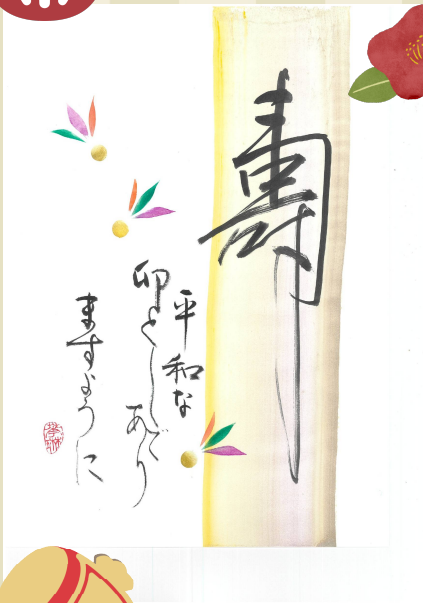 寿
平和な
卯どしであり
ますように